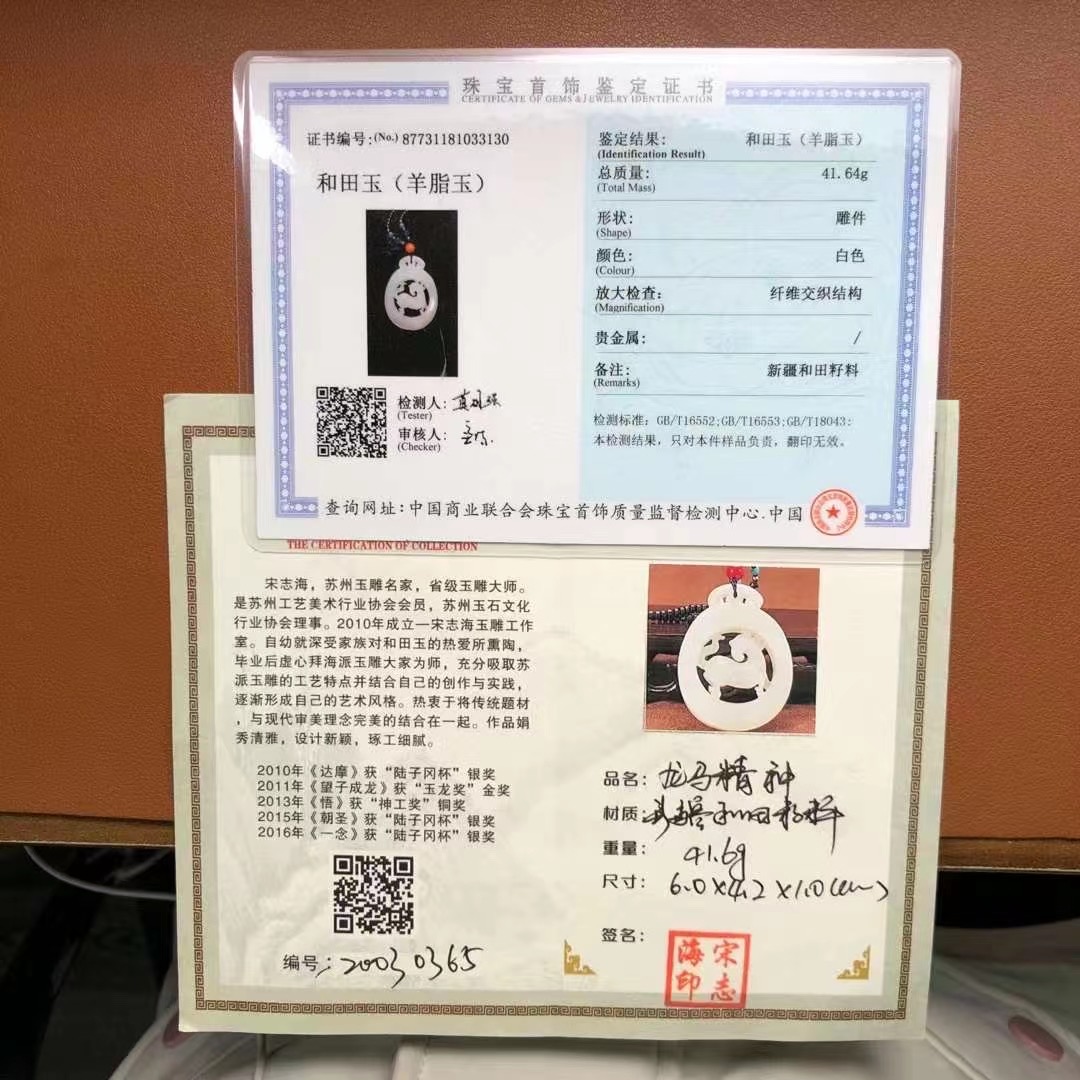 珠宝首饰鉴定证书
CERTIFICATE OF GEMS & JEWELRY IDENTIFICATION
证书编号:(No.) 87731181033130
和田玉（羊脂玉）
检测人:
(Tester)
审核人:
(Checker)
鉴定结果: 和田玉（羊脂玉）
(Identification Result)
总质量: 41.64g
(Total Mass)
形状: 雕件
(Shape)
颜色: 白色
(Colour)
放大检查: 纤维交织结构
(Magnification)
贵金属: /
备注: 新疆和田籽料
(Remarks)
检测标准: GB/T16552;GB/T16553;GB/T18043:
本检测结果，只对本件样品负责，翻印无效。
查询网址:中国商业联合会珠宝首饰质量监督检测中心.中国
THE CERTIFICATION OF COLLECTION
宋志海，苏州玉雕名家，省级玉雕大师。
是苏州工艺美术行业协会会员，苏州玉石文化
行业协会理事。2010年成立一宋志海玉雕工作
室。自幼就深受家族对和田玉的热爱所熏陶，
毕业后虚心拜海派玉雕大家为师，充分吸取苏
派玉雕的工艺特点并结合自己的创作与实践，
逐渐形成自己的艺术风格。热衷于将传统题材
，与现代审美理念完美的结合在一起。作品娟
秀清雅，设计新颖，琢工细腻。
2010年《达摩》获“陆子冈杯”银奖
2011年《望子成龙》获“玉龙奖”金奖
2013年《悟》获“神工奖”铜奖
2015年《朝圣》获“陆子冈杯”银奖
2016年《一念》获“陆子冈杯”银奖
编号: 20030365
品名: 龙马精神
材质: 新疆和田籽料
重量: 41.6g
尺寸: 6.0×4.2×1.0(cm)
签名:
宋志海印